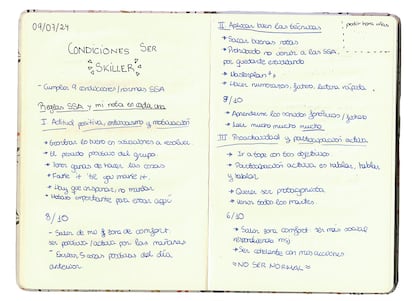 09/07/24
CONDICIONES SER
SKILLER
- Cumplir 9 condiciones/normas SSA
Reglas SSA y mi nota en cada una
I Actitud positiva, entusiasmo y motivación
→ Centrar el
en situaciones a resolver
→ El
positivo del grupo.
→ Tener ganas de hacer las cosas
→ Fake it 'til you make it.
→ Hay que inspirar, no mandar
→ Motivo importante para estar aquí
8/10
- Salir de mi zona de comfort:
ser positivo/activo por las mañanas
- Escribir 5 cosas positivas del día
anterior
II Aplicar bien las técnicas
→ Sacar buenas notas
→ Prohibido no venir a las SSA,
por quedarte estudiando
→ Masterplan
→ Hacer numerosas, fichero, lectura rápida.
8/10
→ Aprenderme los sonidos fonéticos/fichero
→ Leer mucho mucho mucho
III Proactividad y participación activa
→ Ir a tope con tus objetivos
→ Participación activa es hablar, hablar
y hablar.
→ Querer ser protagonista
→ Venir todos los martes.
6/10
→ Salir zona comfort: ser más social
→ Ser coherente con mis acciones
NO SER NORMAL